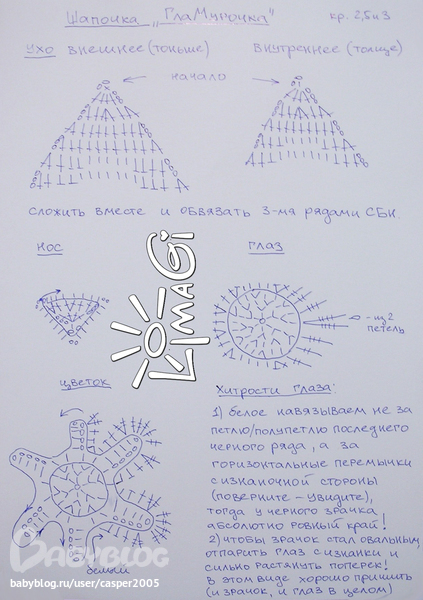 Шапочка „ГлаМурочка"
кр. 2,5 и 3
Ухо внешнее (тоньше)
внутреннее (толще)
начало
сложить вместе и обвязать 3-мя рядами СБН.
нос
глаз
KiMAGi
- из 2
петель
цветок
Хитрости глаза:
1) белое навязываем не за
петлю/полупетлю последнего
черного ряда, а за
горизонтальные перемычки
с изнаночной стороны
(поверните - увидите),
тогда у черного зрачка
абсолютно ровный край!
2) чтобы зрачок стал овальным,
отпарить глаз с изнанки и
сильно растянуть поперек!
В этом виде хорошо пришить
(и зрачок, и глаз в целом)
белый
BABYBLOG
babyblog.ru/user/casper2005